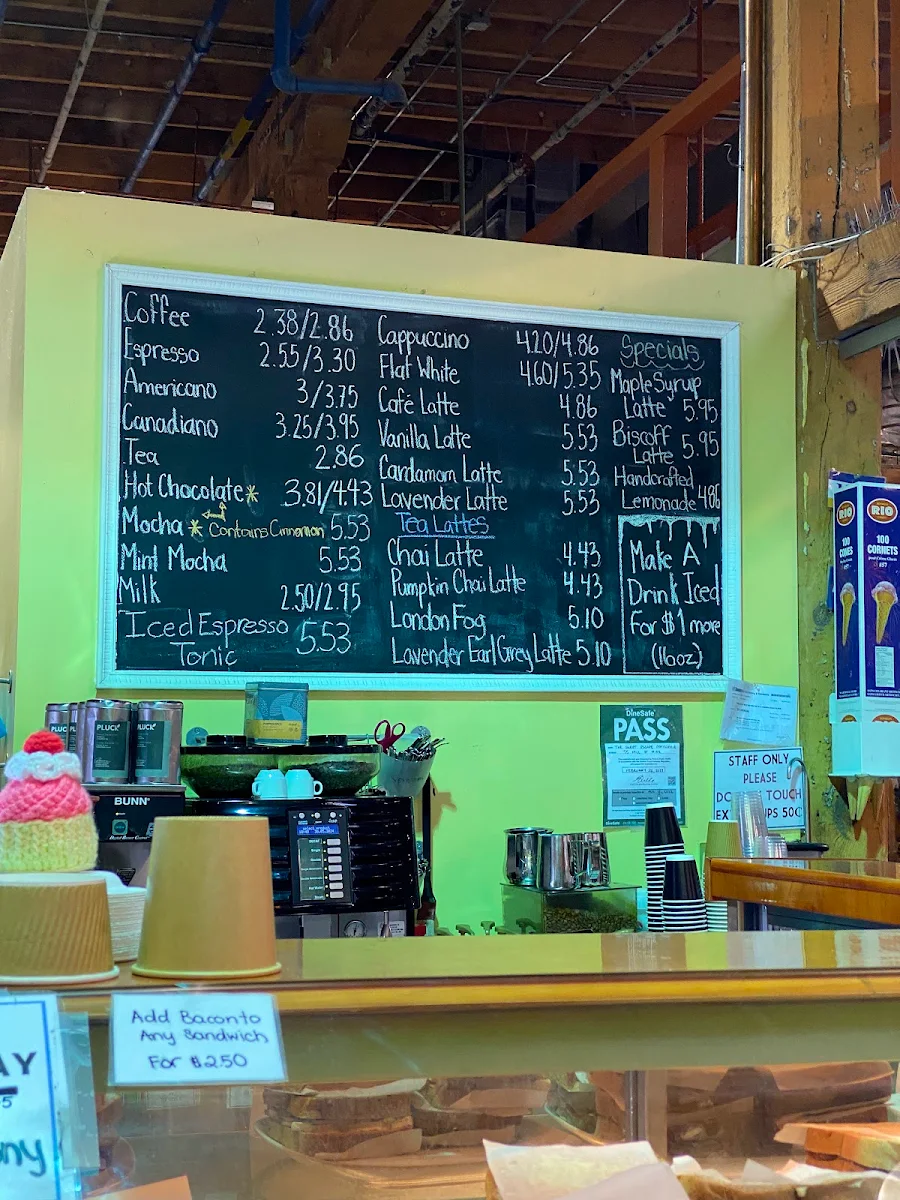 Coffee 2.38/2.86
Espresso 2.55/3.30
Americano 3/3.75
Canadiano 3.25/3.95
Tea 2.86
Hot Chocolate* 3.81/4.43
Mocha * Contains Cinnamon 5.53
Mint Mocha 5.53
Milk 2.50/2.95
Iced Espresso 5.53
Tonic
Cappuccino 4.20/4.86
Flat White 4.60/5.35
Café Latte 4.86
Vanilla Latte 5.53
Cardamom Latte 5.53
Lavender Latte 5.53
Tea Lattes
Chai Latte 4.43
Pumpkin Chai Latte 4.43
London Fog 5.10
Lavender Earl Grey Latte 5.10
Specials
Maple Syrup
Latte 5.95
Biscoff
Latte 5.95
Handcrafted
Lemonade 4.86
Make A
Drink Iced
For $1 more
(16oz)
RIO
100
CONES
RIO
100
CORNETS
PLUCK
PLUCK
PLUCK
BUNN
DineSafe
PASS
STAFF ONLY
PLEASE
TOUCH
50¢
Add Bacon to
Any Sandwich
For $2.50
AY